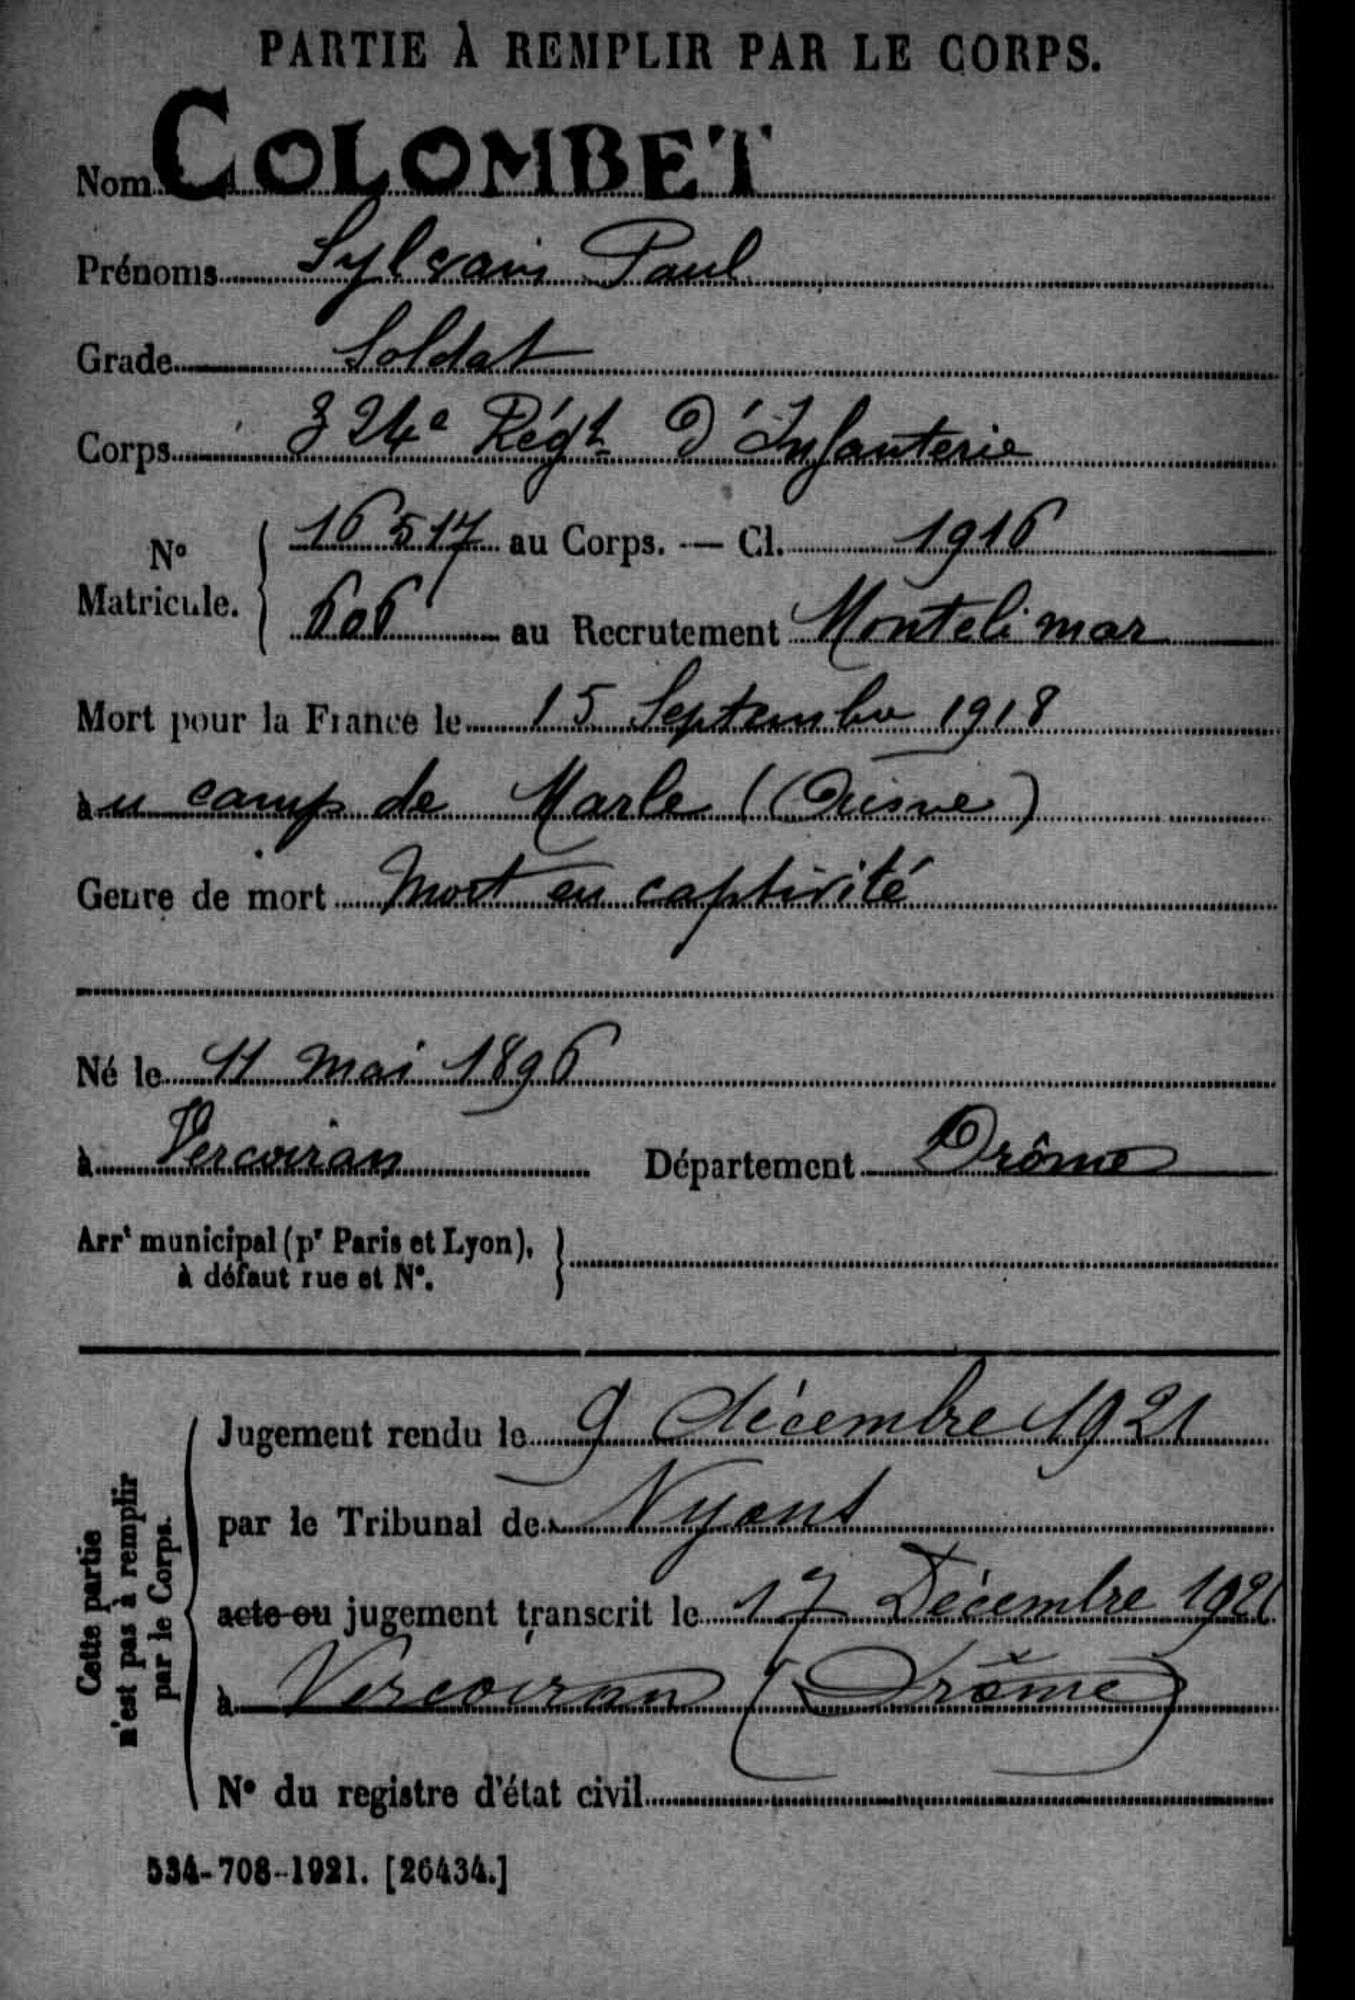 PARTIE À REMPLIR PAR LE CORPS.
Nom COLOMBET
Prénoms Sylvain Paul
Grade Soldat
Corps 324e Régt d'Infanterie
No Matricule. { 16517 au Corps. — Cl. 1916
606 au Recrutement Montelimar
Mort pour la France le 15 Septembre 1918
au camp de Marle (Aisne)
Genre de mort Mort en captivité
Né le 11 mai 1896
à Vercoiran Département Drôme
Arrt municipal (pr Paris et Lyon),
à défaut rue et No.
Cette partie
n'est pas à remplir
par le Corps.
Jugement rendu le 9 décembre 1921
par le Tribunal de Nyons
acte ou jugement transcrit le 17 Décembre 1921
à Vercoiran (Drôme)
No du registre d'état civil
534-708-1921. [26434.]